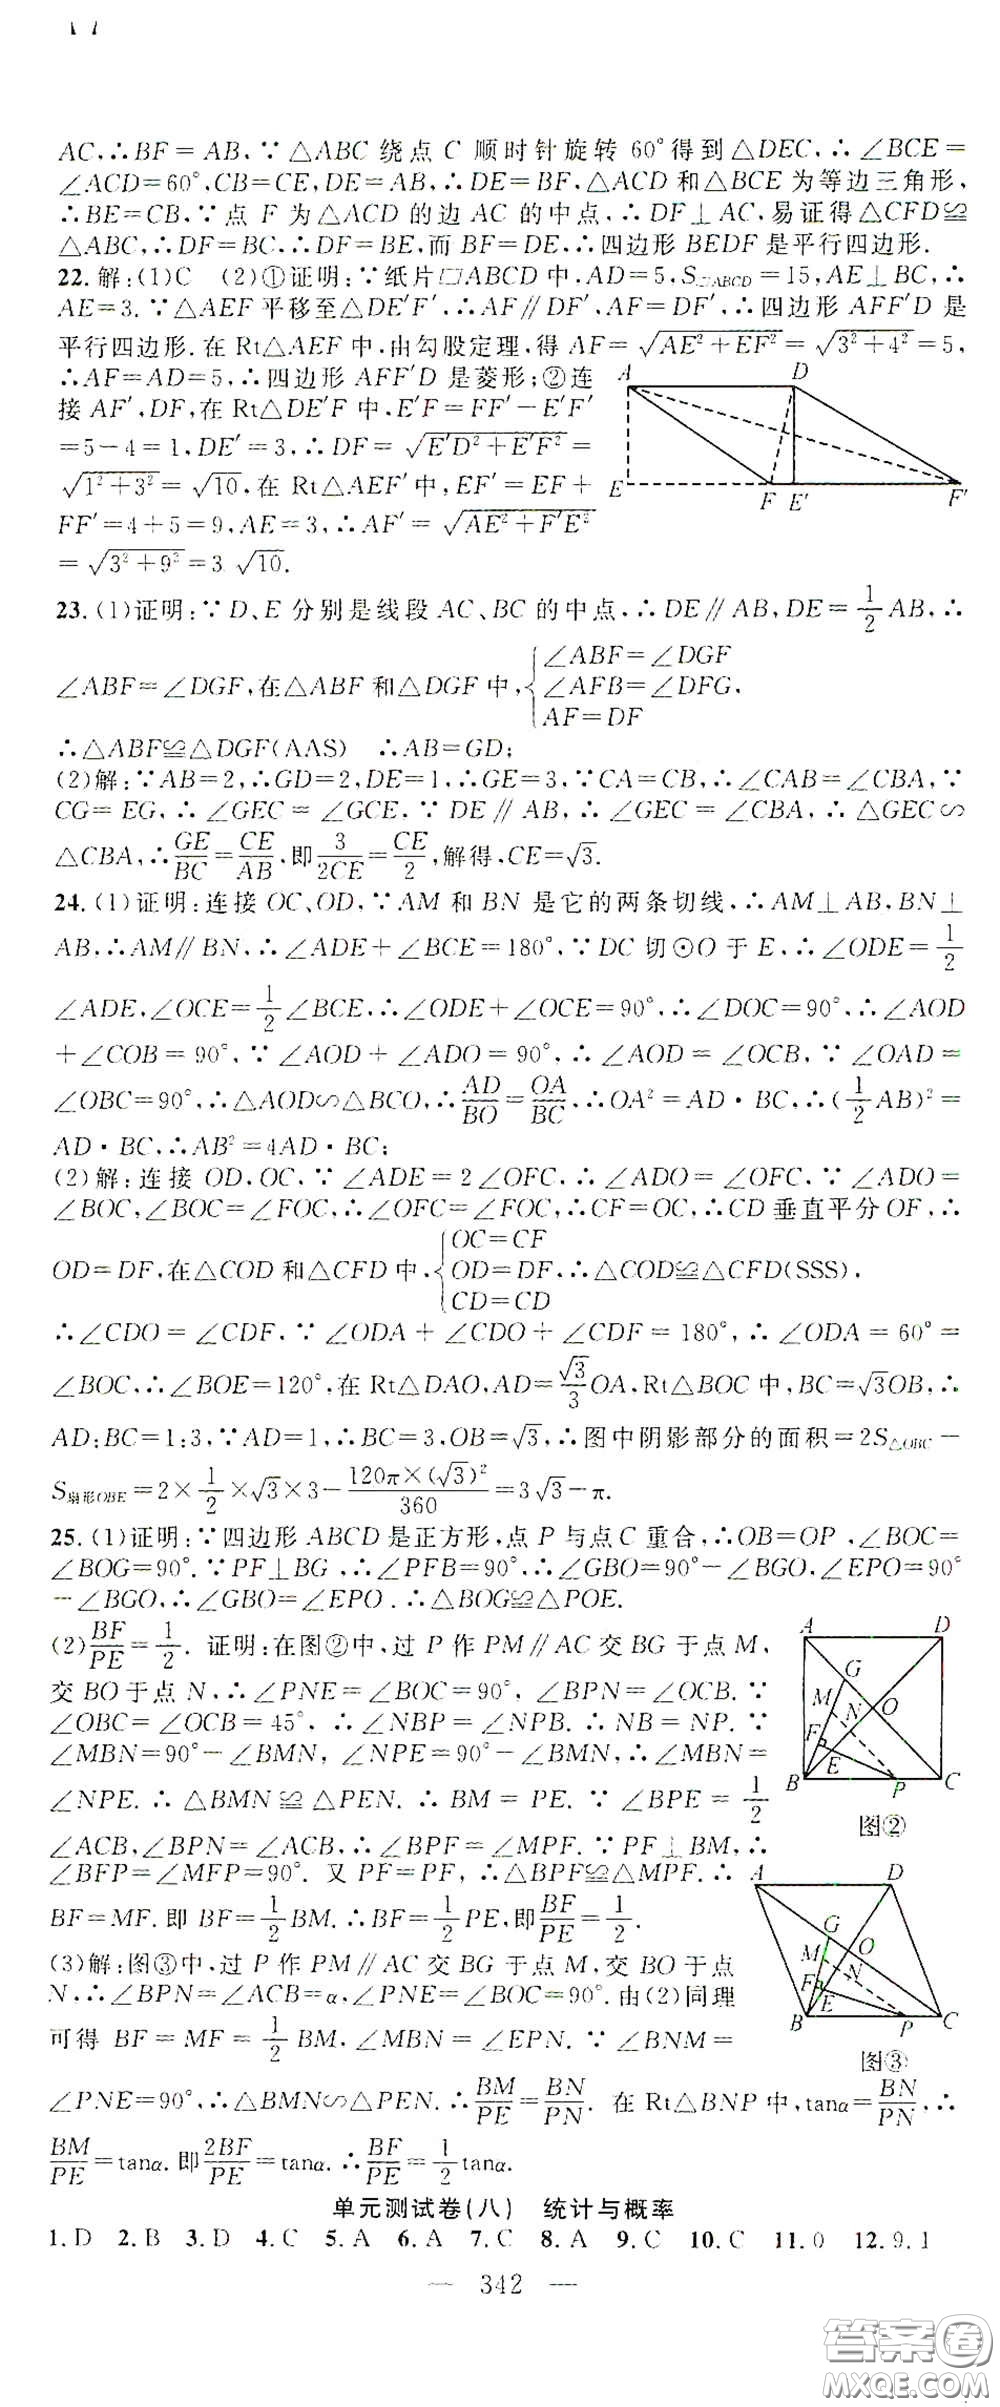 AC,∴BF=AB,∵△ABC绕点C顺时针旋转60°得到△DEC,∴∠BCE=
∠ACD=60°,CB=CE,DE=AB,∴DE=BF,△ACD和△BCE为等边三角形,
∴BE=CB,∵点F为△ACD的边AC的中点,∴DF⊥AC,易证得△CFD≌
△ABC,∴DF=BC,∴DF=BE,而BF=DE,∴四边形BEDF是平行四边形.
22.解:(1)C (2)①证明:∵纸片▱ABCD中,AD=5,S▱ABCD=15,AE⊥BC,∴
AE=3.∵△AEF平移至△DE′F′,∴AF∥DF′,AF=DF′,∴四边形AFF′D是
平行四边形.在Rt△AEF中,由勾股定理,得AF=√(AE²+EF²)=√(3²+4²)=5,
∴AF=AD=5,∴四边形AFF′D是菱形;②连
接AF′,DF,在Rt△DE′F中,E′F=FF′-E′F′
=5-4=1,DE′=3,∴DF=√(E′D²+E′F²)=
√(1²+3²)=√10,在Rt△AEF′中,EF′=EF+
FF′=4+5=9,AE=3,∴AF′=√(AE²+F′E²)
=√(3²+9²)=3√10.
A D
E F E′ F′
23.(1)证明:∵D、E分别是线段AC、BC的中点,∴DE∥AB,DE=1/2AB,∴
∠ABF=∠DGF,在△ABF和△DGF中,{∠ABF=∠DGF
∠AFB=∠DFG,
AF=DF
∴△ABF≌△DGF(AAS) ∴AB=GD;
(2)解:∵AB=2,∴GD=2,DE=1,∴GE=3,∵CA=CB,∴∠CAB=∠CBA,∵
CG=EG,∴∠GEC=∠GCE.∵DE∥AB,∴∠GEC=∠CBA,∴△GEC∽
△CBA,∴GE/BC=CE/AB,即3/2CE=CE/2,解得,CE=√3.
24.(1)证明:连接OC、OD,∵AM和BN是它的两条切线,∴AM⊥AB,BN⊥
AB,∴AM∥BN,∴∠ADE+∠BCE=180°,∵DC切⊙O于E,∴∠ODE=1/2
∠ADE,∠OCE=1/2∠BCE,∴∠ODE+∠OCE=90°,∴∠DOC=90°,∴∠AOD
+∠COB=90°,∵∠AOD+∠ADO=90°,∴∠AOD=∠OCB,∵∠OAD=
∠OBC=90°,∴△AOD∽△BCO,∴AD/BO=OA/BC,∴OA²=AD·BC,∴(1/2AB)²=
AD·BC,∴AB²=4AD·BC;
(2)解:连接OD,OC,∵∠ADE=2∠OFC,∴∠ADO=∠OFC,∵∠ADO=
∠BOC,∠BOC=∠FOC,∴∠OFC=∠FOC,∴CF=OC,∴CD垂直平分OF,∴
OD=DF,在△COD和△CFD中,{OC=CF
OD=DF,∴△COD≌△CFD(SSS),
CD=CD
∴∠CDO=∠CDF,∵∠ODA+∠CDO+∠CDF=180°,∴∠ODA=60°=
∠BOC,∴∠BOE=120°,在Rt△DAO,AD=√3/3OA,Rt△BOC中,BC=√3OB,∴
AD:BC=1:3,∵AD=1,∴BC=3,OB=√3,∴图中阴影部分的面积=2S△OBC-
S扇形OBE=2×1/2×√3×3-120π×(√3)²/360=3√3-π.
25.(1)证明:∵四边形ABCD是正方形,点P与点C重合,∴OB=OP,∠BOC=
∠BOG=90°.∵PF⊥BG,∴∠PFB=90°,∴∠GBO=90°-∠BGO,∠EPO=90°
-∠BGO,∴∠GBO=∠EPO.∴△BOG≌△POE.
(2)BF/PE=1/2.证明:在图②中,过P作PM∥AC交BG于点M,
交BO于点N,∴∠PNE=∠BOC=90°,∠BPN=∠OCB.∵
∠OBC=∠OCB=45°,∴∠NBP=∠NPB.∴NB=NP.∵
∠MBN=90°-∠BMN,∠NPE=90°-∠BMN,∴∠MBN=
∠NPE.∴△BMN≌△PEN.∴BM=PE.∵∠BPE=1/2
∠ACB,∠BPN=∠ACB,∴∠BPF=∠MPF.∵PF⊥BM,∴
∠BFP=∠MFP=90°.又PF=PF,∴△BPF≌△MPF.∴
BF=MF.即BF=1/2BM.∴BF=1/2PE,即BF/PE=1/2.
A D
G
M N O
F
E
B P C
图②
(3)解:图③中,过P作PM∥AC交BG于点M,交BO于点
N,∴∠BPN=∠ACB=α,∠PNE=∠BOC=90°.由(2)同理
可得BF=MF=1/2BM,∠MBN=∠EPN.∵∠BNM=
∠PNE=90°,∴△BMN∽△PEN.∴BM/PE=BN/PN.在Rt△BNP中,tanα=BN/PN,∴
BM/PE=tanα.即2BF/PE=tanα.∴BF/PE=1/2tanα.
A D
G
M O
F N
E
B P C
图③
单元测试卷(八) 统计与概率
1.D 2.B 3.D 4.C 5.A 6.A 7.C 8.A 9.C 10.C 11.0 12.9.1
— 342 —
答案卷
MXQE.COM